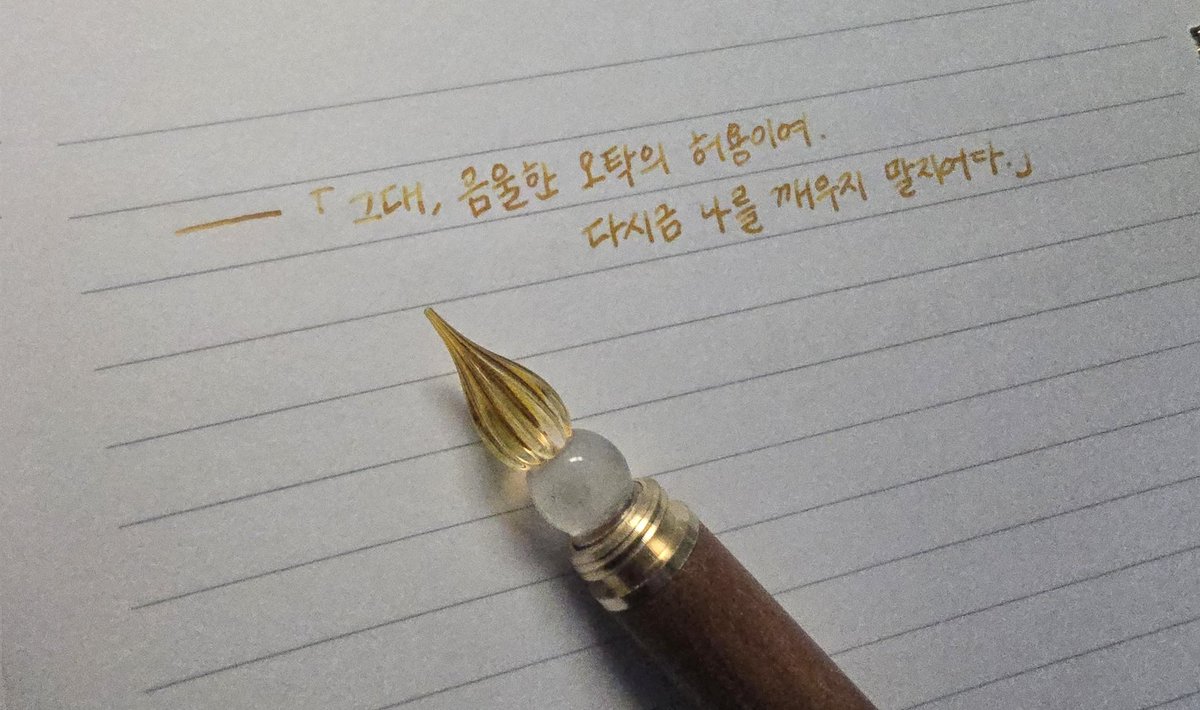 ——「그대, 음울한 오탁의 허용이여.
다시금 나를 깨우지 말지어다.」